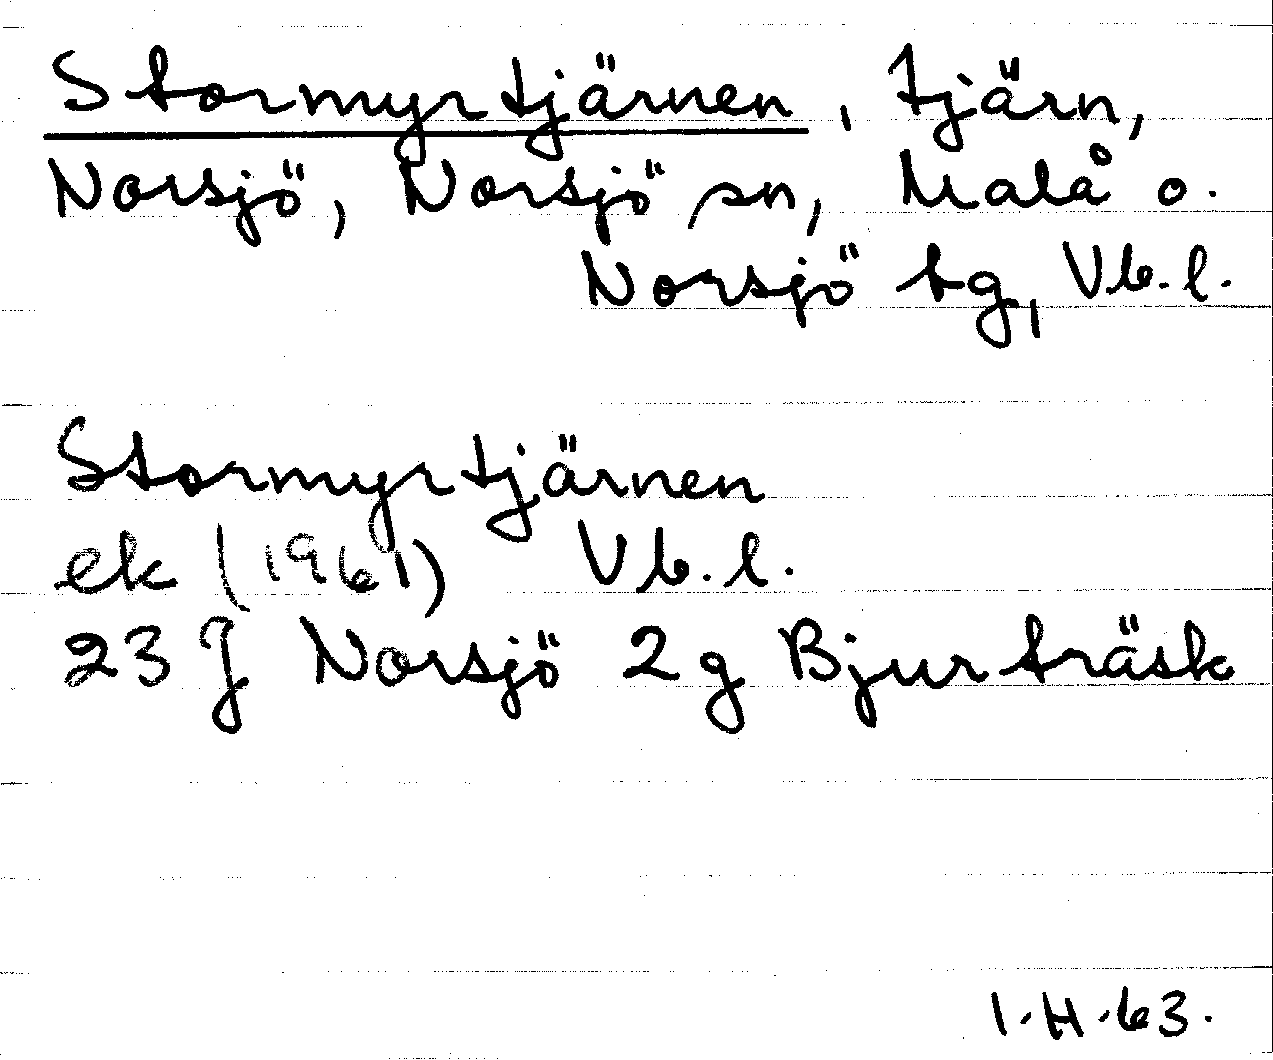 Stormyrtjärnen, tjärn,
Norsjö, Norsjö sn, Malå o.
Norsjö tg, Vb.l.
Stormyrtjärnen
ek (1961) Vb.l.
23 J Norsjö 2g Bjurträsk
I.H.63.